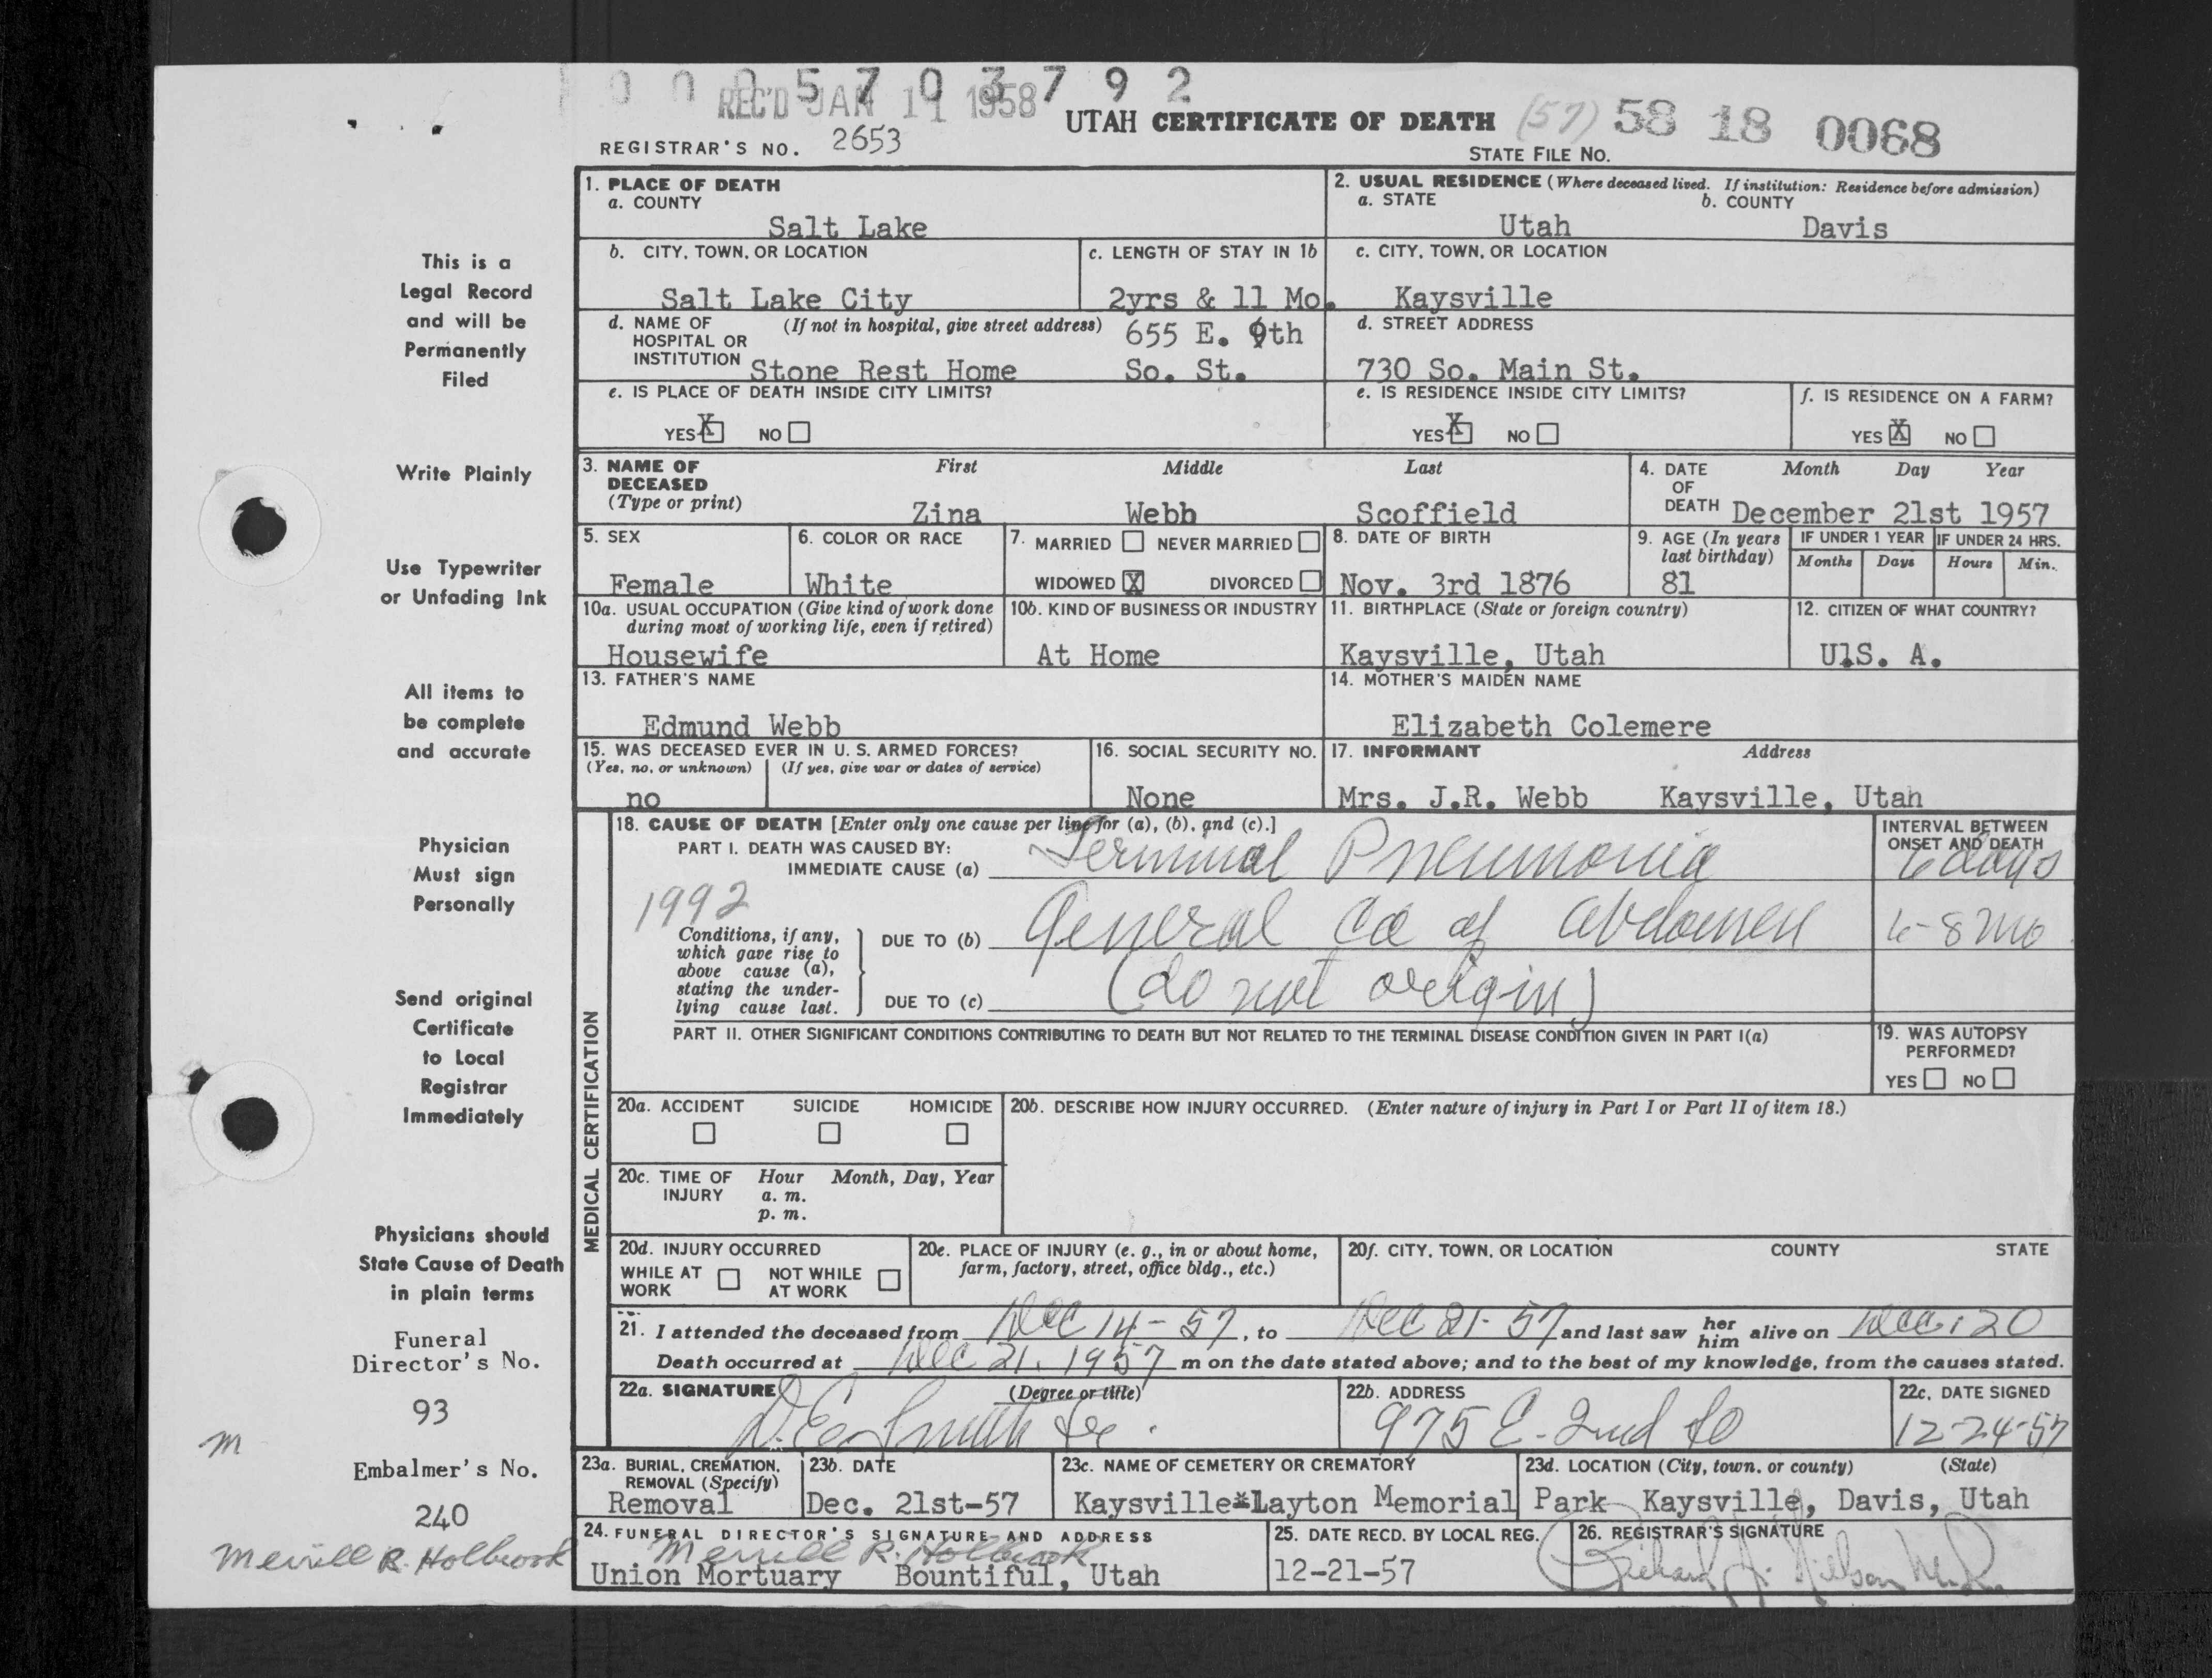 0 0 0 5 7 0 3 7 9 2
REC'D JAN 11 1958
UTAH CERTIFICATE OF DEATH (57) 58 18 0068
REGISTRAR'S NO. 2653
STATE FILE NO.
1. PLACE OF DEATH
a. COUNTY
Salt Lake
2. USUAL RESIDENCE (Where deceased lived. If institution: Residence before admission)
a. STATE b. COUNTY
Utah Davis
b. CITY, TOWN, OR LOCATION
Salt Lake City
c. LENGTH OF STAY IN 1b
2yrs & 11 Mo.
c. CITY, TOWN, OR LOCATION
Kaysville
d. NAME OF (If not in hospital, give street address) 655 E. 9th
HOSPITAL OR
INSTITUTION Stone Rest Home So. St.
d. STREET ADDRESS
730 So. Main St.
e. IS PLACE OF DEATH INSIDE CITY LIMITS?
YES X NO
e. IS RESIDENCE INSIDE CITY LIMITS?
YES X NO
f. IS RESIDENCE ON A FARM?
YES X NO
3. NAME OF First Middle Last
DECEASED
(Type or print) Zina Webb Scoffield
4. DATE Month Day Year
OF
DEATH December 21st 1957
5. SEX
Female
6. COLOR OR RACE
White
7. MARRIED NEVER MARRIED
WIDOWED X DIVORCED
8. DATE OF BIRTH
Nov. 3rd 1876
9. AGE (In years
last birthday)
81
IF UNDER 1 YEAR
Months Days
IF UNDER 24 HRS.
Hours Min.
10a. USUAL OCCUPATION (Give kind of work done
during most of working life, even if retired)
Housewife
10b. KIND OF BUSINESS OR INDUSTRY
At Home
11. BIRTHPLACE (State or foreign country)
Kaysville, Utah
12. CITIZEN OF WHAT COUNTRY?
U.S. A.
13. FATHER'S NAME
Edmund Webb
14. MOTHER'S MAIDEN NAME
Elizabeth Colemere
15. WAS DECEASED EVER IN U. S. ARMED FORCES?
(Yes, no, or unknown) (If yes, give war or dates of service)
no
16. SOCIAL SECURITY NO.
None
17. INFORMANT Address
Mrs. J.R. Webb Kaysville, Utah
MEDICAL CERTIFICATION
18. CAUSE OF DEATH [Enter only one cause per line for (a), (b), and (c).]
PART I. DEATH WAS CAUSED BY:
IMMEDIATE CAUSE (a) Terminal Pneumonia
INTERVAL BETWEEN
ONSET AND DEATH
6 days
1992
Conditions, if any,
which gave rise to
above cause (a),
stating the under-
lying cause last.
DUE TO (b) General Ca of abdomen
6-8 mo
DUE TO (c) (do not origin)
PART II. OTHER SIGNIFICANT CONDITIONS CONTRIBUTING TO DEATH BUT NOT RELATED TO THE TERMINAL DISEASE CONDITION GIVEN IN PART I(a)
19. WAS AUTOPSY
PERFORMED?
YES NO
20a. ACCIDENT SUICIDE HOMICIDE
20b. DESCRIBE HOW INJURY OCCURRED. (Enter nature of injury in Part I or Part II of item 18.)
20c. TIME OF Hour Month, Day, Year
INJURY a. m.
p. m.
20d. INJURY OCCURRED
WHILE AT NOT WHILE
WORK AT WORK
20e. PLACE OF INJURY (e. g., in or about home,
farm, factory, street, office bldg., etc.)
20f. CITY, TOWN, OR LOCATION COUNTY STATE
21. I attended the deceased from Dec 14 - 57, to Dec 21 - 57 and last saw her him alive on Dec. 20
Death occurred at Dec 21, 1957 m on the date stated above; and to the best of my knowledge, from the causes stated.
22a. SIGNATURE (Degree or title)
D.E. Smith Sr.
22b. ADDRESS
975 E. 2nd So
22c. DATE SIGNED
12-24-57
23a. BURIAL, CREMATION,
REMOVAL (Specify)
Removal
23b. DATE
Dec. 21st-57
23c. NAME OF CEMETERY OR CREMATORY
Kaysville*Layton Memorial
23d. LOCATION (City, town, or county) (State)
Park Kaysville, Davis, Utah
24. FUNERAL DIRECTOR'S SIGNATURE AND ADDRESS
Merrill R. Holbrook
Union Mortuary Bountiful, Utah
25. DATE RECD. BY LOCAL REG.
12-21-57
26. REGISTRAR'S SIGNATURE
This is a
Legal Record
and will be
Permanently
Filed
Write Plainly
Use Typewriter
or Unfading Ink
All items to
be complete
and accurate
Physician
Must sign
Personally
Send original
Certificate
to Local
Registrar
Immediately
Physicians should
State Cause of Death
in plain terms
Funeral
Director's No.
93
m
Embalmer's No.
240
Merrill R. Holbrook